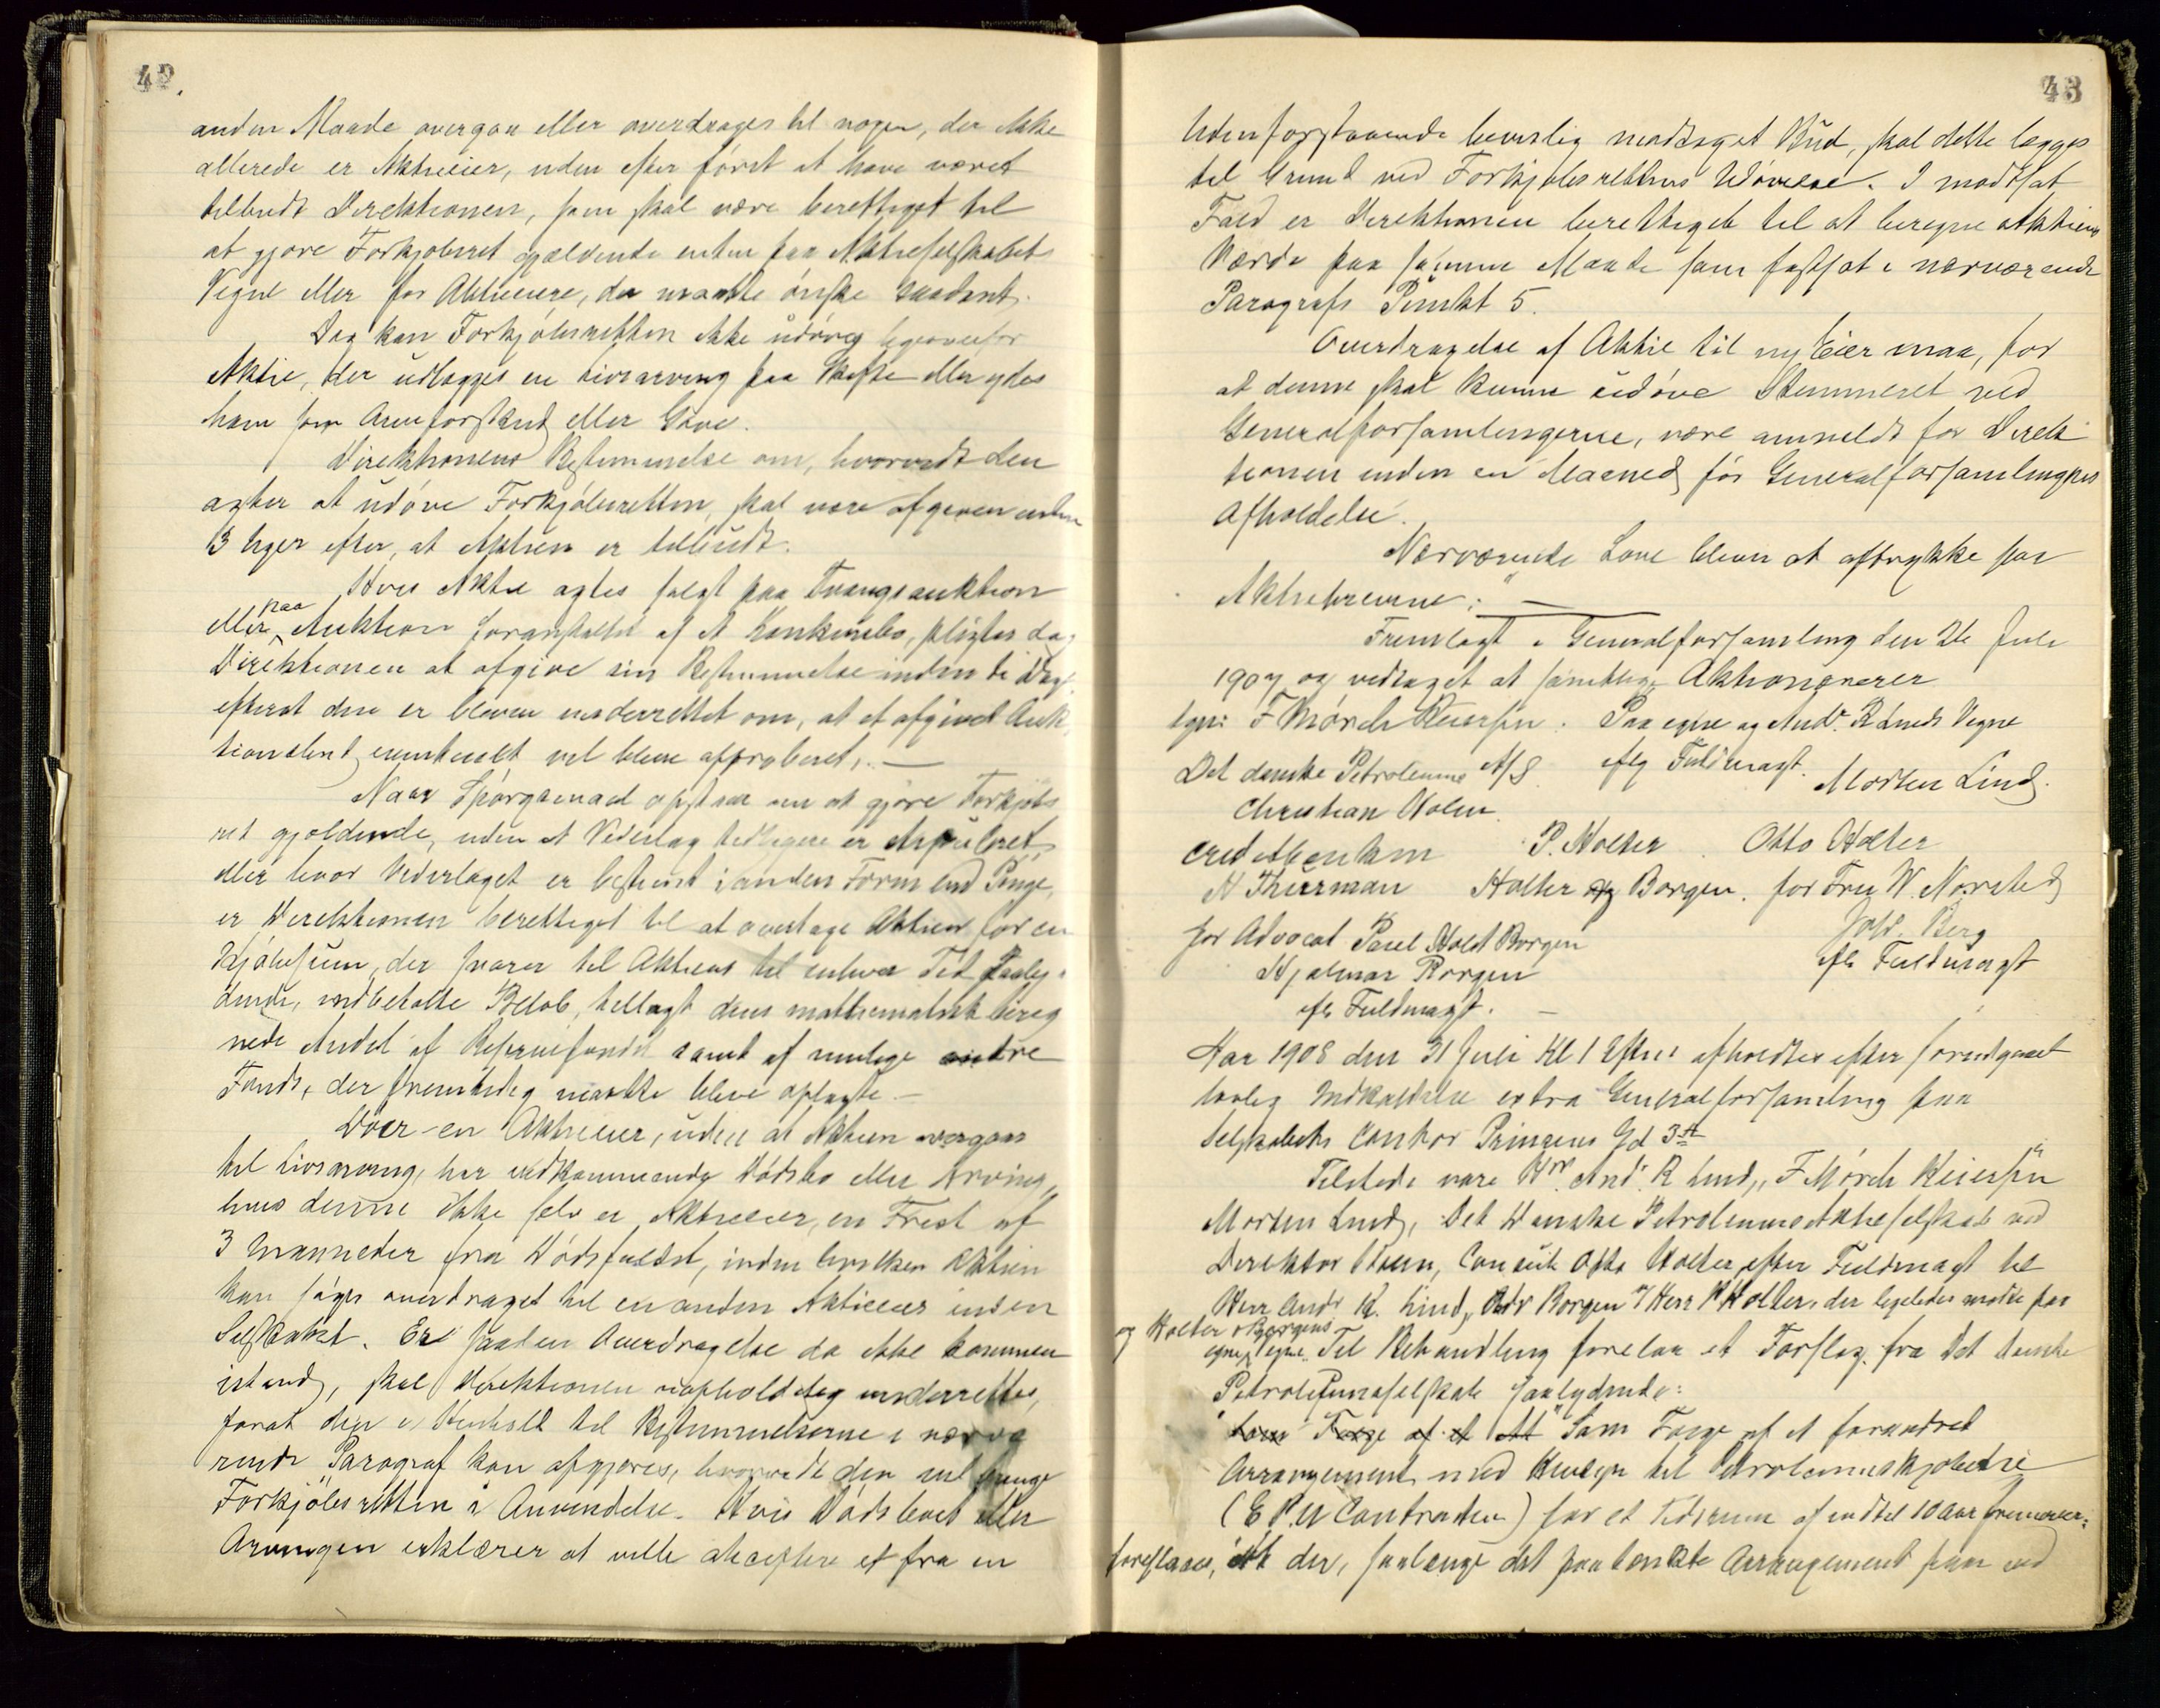 42.
anden Maade overgaa eller overdrages til nogen, der ikke
allerede er Aktieeier, uden efter først at have været
tilbudt Direktionen, som skal være berettiget til
at gjøre Forkjøbsret gjældende enten paa Aktieselskabets
Vegne eller for Aktieeiere, der maatte ønske saadant.
Dog kan Forkjøbsretten ikke udøves ligeoverfor
Aktie, der udlægges en Livsarving paa Skifte eller ydes
ham som Arveforskud eller Gave.
Direktionens Bestemmelse om, hvorvidt den
agter at udøve Forkjøbsretten, skal være afgiven inden
3 Uger efter, at Aktien er tilbudt.
Hvis Aktie agtes solgt paa Tvangsauktion
eller paa Auktion foranstaltet af et Konkursbo, pligter dog
Direktionen at afgive sin Bestemmelse inden ti Dage
efterat den er bleven underrettet om, at et afgivet Auk
tionsbud eventuelt vil blive approberet. —
Naar Spørgsmaal opstaar om at gjøre Forkjøbs
ret gjældende, uden at Vederlag tidligere er stipuleret,
eller hvor Vederlaget er bestemt i anden Form end Penge,
er Direktionen berettiget til at overtage Aktien for en
Kjøbesum, der svarer til Aktiens til enhver Tid paaly-
dende, indbetalte Beløb, tillagt dens mathematisk bereg
nede Andel af Reservefondet samt af mulige andre
Fonds, der fremtidig maatte blive oplagte —
Dør en Aktieeier, uden at Aktien overgaar
til Livsarving, har vedkommende Dødsbo eller Arving,
hvis denne ikke selv er Aktieeier, en Frist af
3 Maaneder fra Dødsfaldet, inden hvilken Aktien
kan søges overdraget til en anden Aktieeier inden
Selskabet. Er saadan Overdragelse da ikke kommen
istand, skal Direktionen uopholdelig underrettes,
forat den i Henhold til Bestemmelserne i nærvæ
rende Paragraf kan afgjøres, hvorvidt den vil bringe
Forkjøbsretten i Anvendelse. Hvis Dødsboet eller
Arvingen erklærer at ville akceptere et fra en
43
Udenforstaaende bevislig modtaget Bud, skal dette lægges
til Grund ved Forkjøbsrettens Udøvelse. I modsat
Fald er Direktionen berettiget til at beregne Aktiens
Værdi paa samme Maade som fastsat i nærværende
Paragrafs Punkt 5.
Overdragelse af Aktie til ny Eier maa, for
at denne skal kunne udøve Stemmeret ved
Generalforsamlingerne, være anmeldt for Direk
tionen inden en Maaned før Generalforsamlingens
Afholdelse.
Nærværende Love bliver at aftrykke paa
Aktiebrevene." —
Fremlagt i Generalforsamling den 26 Juli
1907 og vedtaget at samtlige Aktionærer
F Mørch Reiersøn. Paa egne og Andr. R Linds Vegne
Det danske Petroleums A/S efter Fuldmagt. Morten Lind.
Christian Holm.
P. Holter Otto Holter
N Thurman Holter og Borgen. for Fru W. Norsted
for Advocat Paul Holst Borgen Joh. Berg
Hjalmar Borgen efter Fuldmagt
efter Fuldmagt. —
Aar 1908 den 31 Juli Kl 1 Efterm afholdtes efter forudgaaet
lovlig Indkaldelse extra Generalforsamling paa
Selskabets Contor Prinsens Gd 3A
Tilstede vare Hrr. And. R Lind, F Mørch Reiersøn
Morten Lind, Det Danske Petroleums Aktieselskab ved
Direktør Holm, Consul Otto Holter efter Fuldmagt til
Herr Andr R. Lind, Adv Borgen Herr P Holter, der ligeledes mødte for
og Holter & Borgens
egne Vegne. Til Behandling forelaa et Forslag fra Det danske
Petroleumsselskab saalydende:
"Som Følge af et At" Som Følge af et forandret
Arrangement med Hensyn til Petroleumskjøbene
(E P. U Contrakten) for et Tidsrum af indtil 10 Aar fremover:
foreslaaes, at der, saalænge det paatænkte Arrangement staar ved